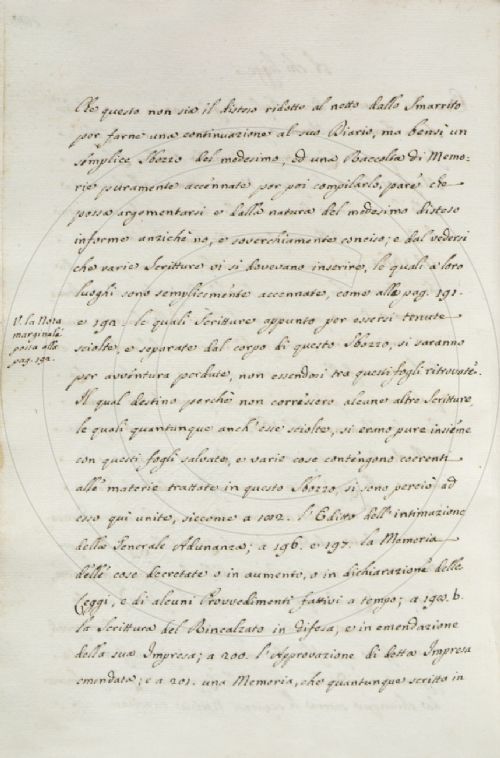 Che questo non sia il disteso ridotto al netto dallo Smarrito
per farne una continuazione al suo Diario, ma bensì un
semplice Sbozzo del medesimo, ed una Raccolta di Memo-
rie puramente accennate per poi compilarlo, pare che
possa argomentarsi e dalla natura del medesimo disteso
informe anzichè no, e soverchiamente conciso; e dal vedersi
che varie Scritture vi si dovevano inserire, le quali a loro
luoghi sono semplicemente accennate, come alle pag. 191.
V. la Nota
marginale
posta alla
pag. 192.
e 192. le quali Scritture appunto per essersi tenute
sciolte, e separate dal corpo di questo Sbozzo, si saranno
per avventura perdute, non essendosi tra questi fogli ritrovate.
Il qual destino perchè non corressero alcune altre Scritture,
le quali quantunque anch'esse sciolte, si erano pure insieme
con questi fogli salvate, e varie cose contengono coerenti
alle materie trattate in questo Sbozzo, si sono perciò ad
esso qui unite, siccome a l'Editto dell'intimazione
della Generale Adunanza; a 196. e 197. la Memoria
delle cose decretate o in aumento, o in dichiarazione delle
Leggi, e di alcuni Provvedimenti fattivi a tempo; a b.
la Scrittura del Rincalzato in difesa, e in emendazione
della sua Impresa; a 200. l'Approvazione di detta Impresa
emendata; e a 201. una Memoria, che quantunque scritto in